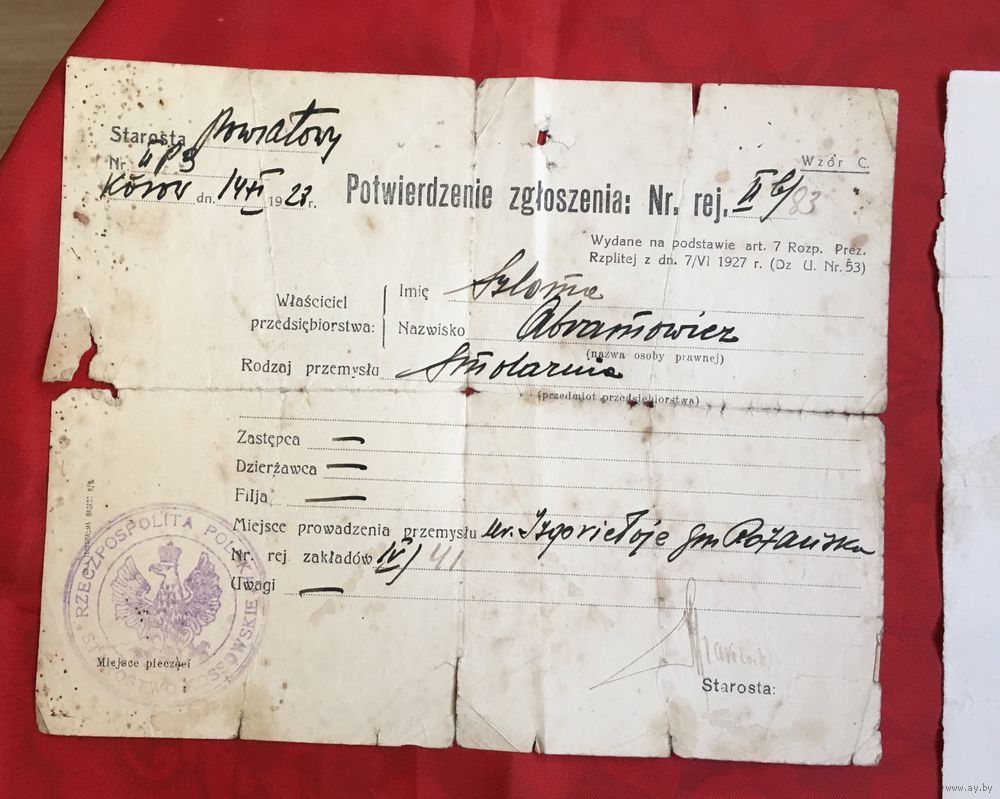 Starosta Powiatowy
Nr. II P3
Kosów dn. 14/XI 1928 r.
Wzór C.
Potwierdzenie zgłoszenia: Nr. rej. II b/83
Wydane na podstawie art. 7 Rozp. Prez.
Rzplitej z dn. 7/VI 1927 r. (Dz U. Nr. 53)
Właściciel przedsiębiorstwa:
Imię Szloma
Nazwisko Abramowicz
(nazwa osoby prawnej)
Rodzaj przemysłu Smolarnia
(przedmiot przedsiębiorstwa)
Zastępca —
Dzierżawca —
Filja —
Miejsce prowadzenia przemysłu ur. gm Różańska
Nr. rej. zakładów IV/41
Uwagi —
RZECZPOSPOLITA POLSKA
STAROSTWO KOSSOWSKIE
Miejsce pieczęci
Starosta:
www.ay.by